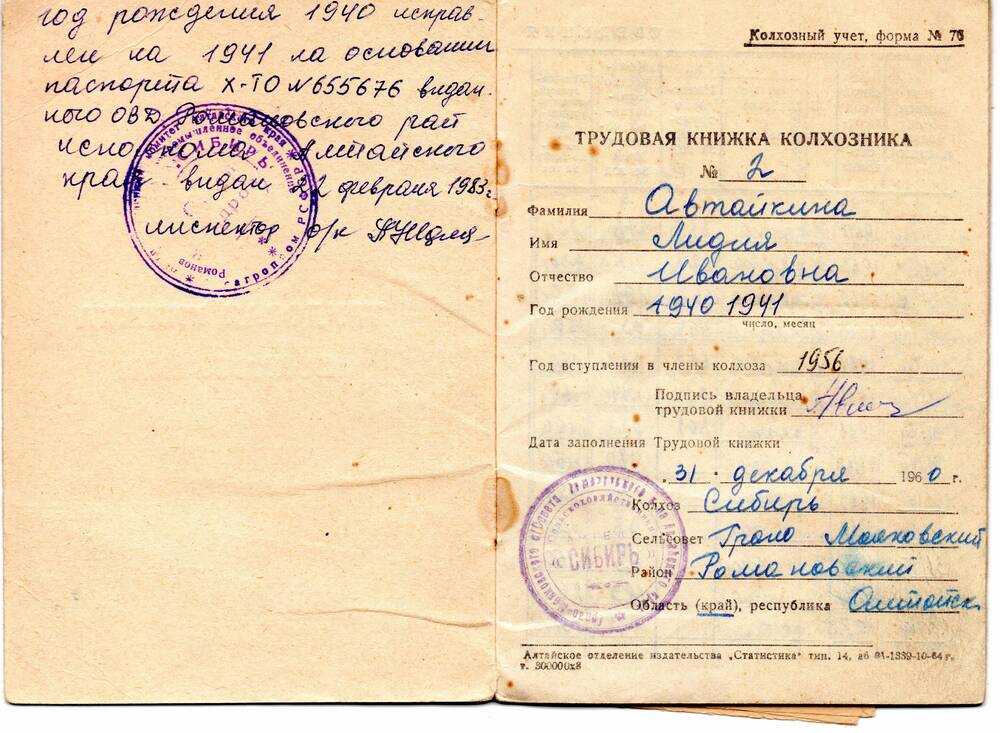 год рождения 1940 исправ-
лен на 1941 на основании
паспорта X-ТО №655676 выдан-
ного ОВД Романовского рай
исполкома Алтайского
края выдан 22 февраля 1983г.
инспектор о/к
Колхозный учет, форма № 76
ТРУДОВАЯ КНИЖКА КОЛХОЗНИКА
№ 2
Фамилия Автайкина
Имя Лидия
Отчество Ивановна
Год рождения 1940 1941
число, месяц
Год вступления в члены колхоза 1956
Подпись владельца
трудовой книжки
Дата заполнения Трудовой книжки
31 декабря 1960 г.
Колхоз Сибирь
Сельсовет Грано Маяковский
Район Романовский
Область (край), республика Алтайск
«СИБИРЬ»
Алтайское отделение издательства „Статистика" тип. 14, аб 81-1339-10-64 г.
т. 300000х8